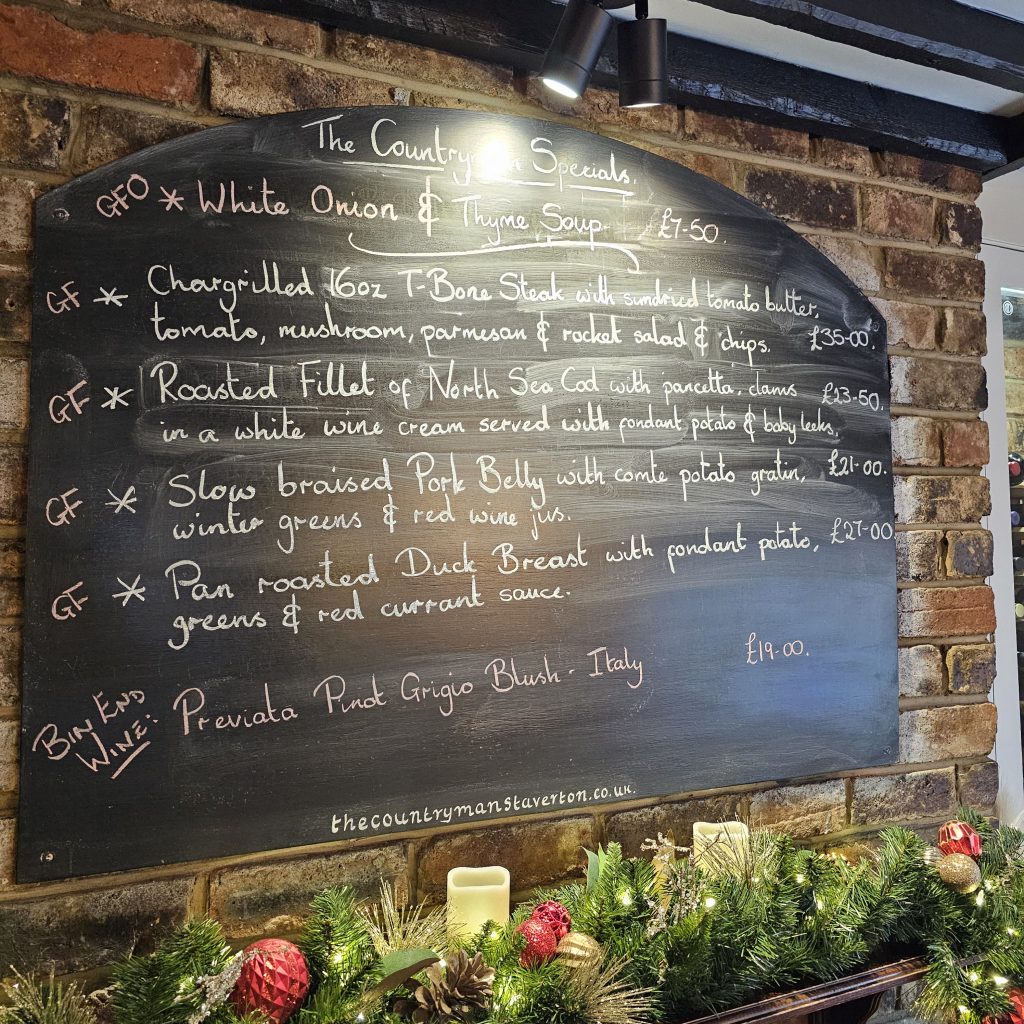 The Countryman Specials.
GFO * White Onion & Thyme Soup £7-50.
GF * Chargrilled 16oz T-Bone Steak with sundried tomato butter,
tomato, mushroom, parmesan & rocket salad & chips. £35-00.
GF * Roasted Fillet of North Sea Cod with pancetta, clams £23-50.
in a white wine cream served with fondant potato & baby leeks,
GF * Slow braised Pork Belly with comte potato gratin, £21-00.
winter greens & red wine jus.
GF * Pan roasted Duck Breast with fondant potato, £27-00
greens & red currant sauce.
BIN END
WINE: Previata Pinot Grigio Blush - Italy £19-00.
thecountrymanstaverton.co.uk.